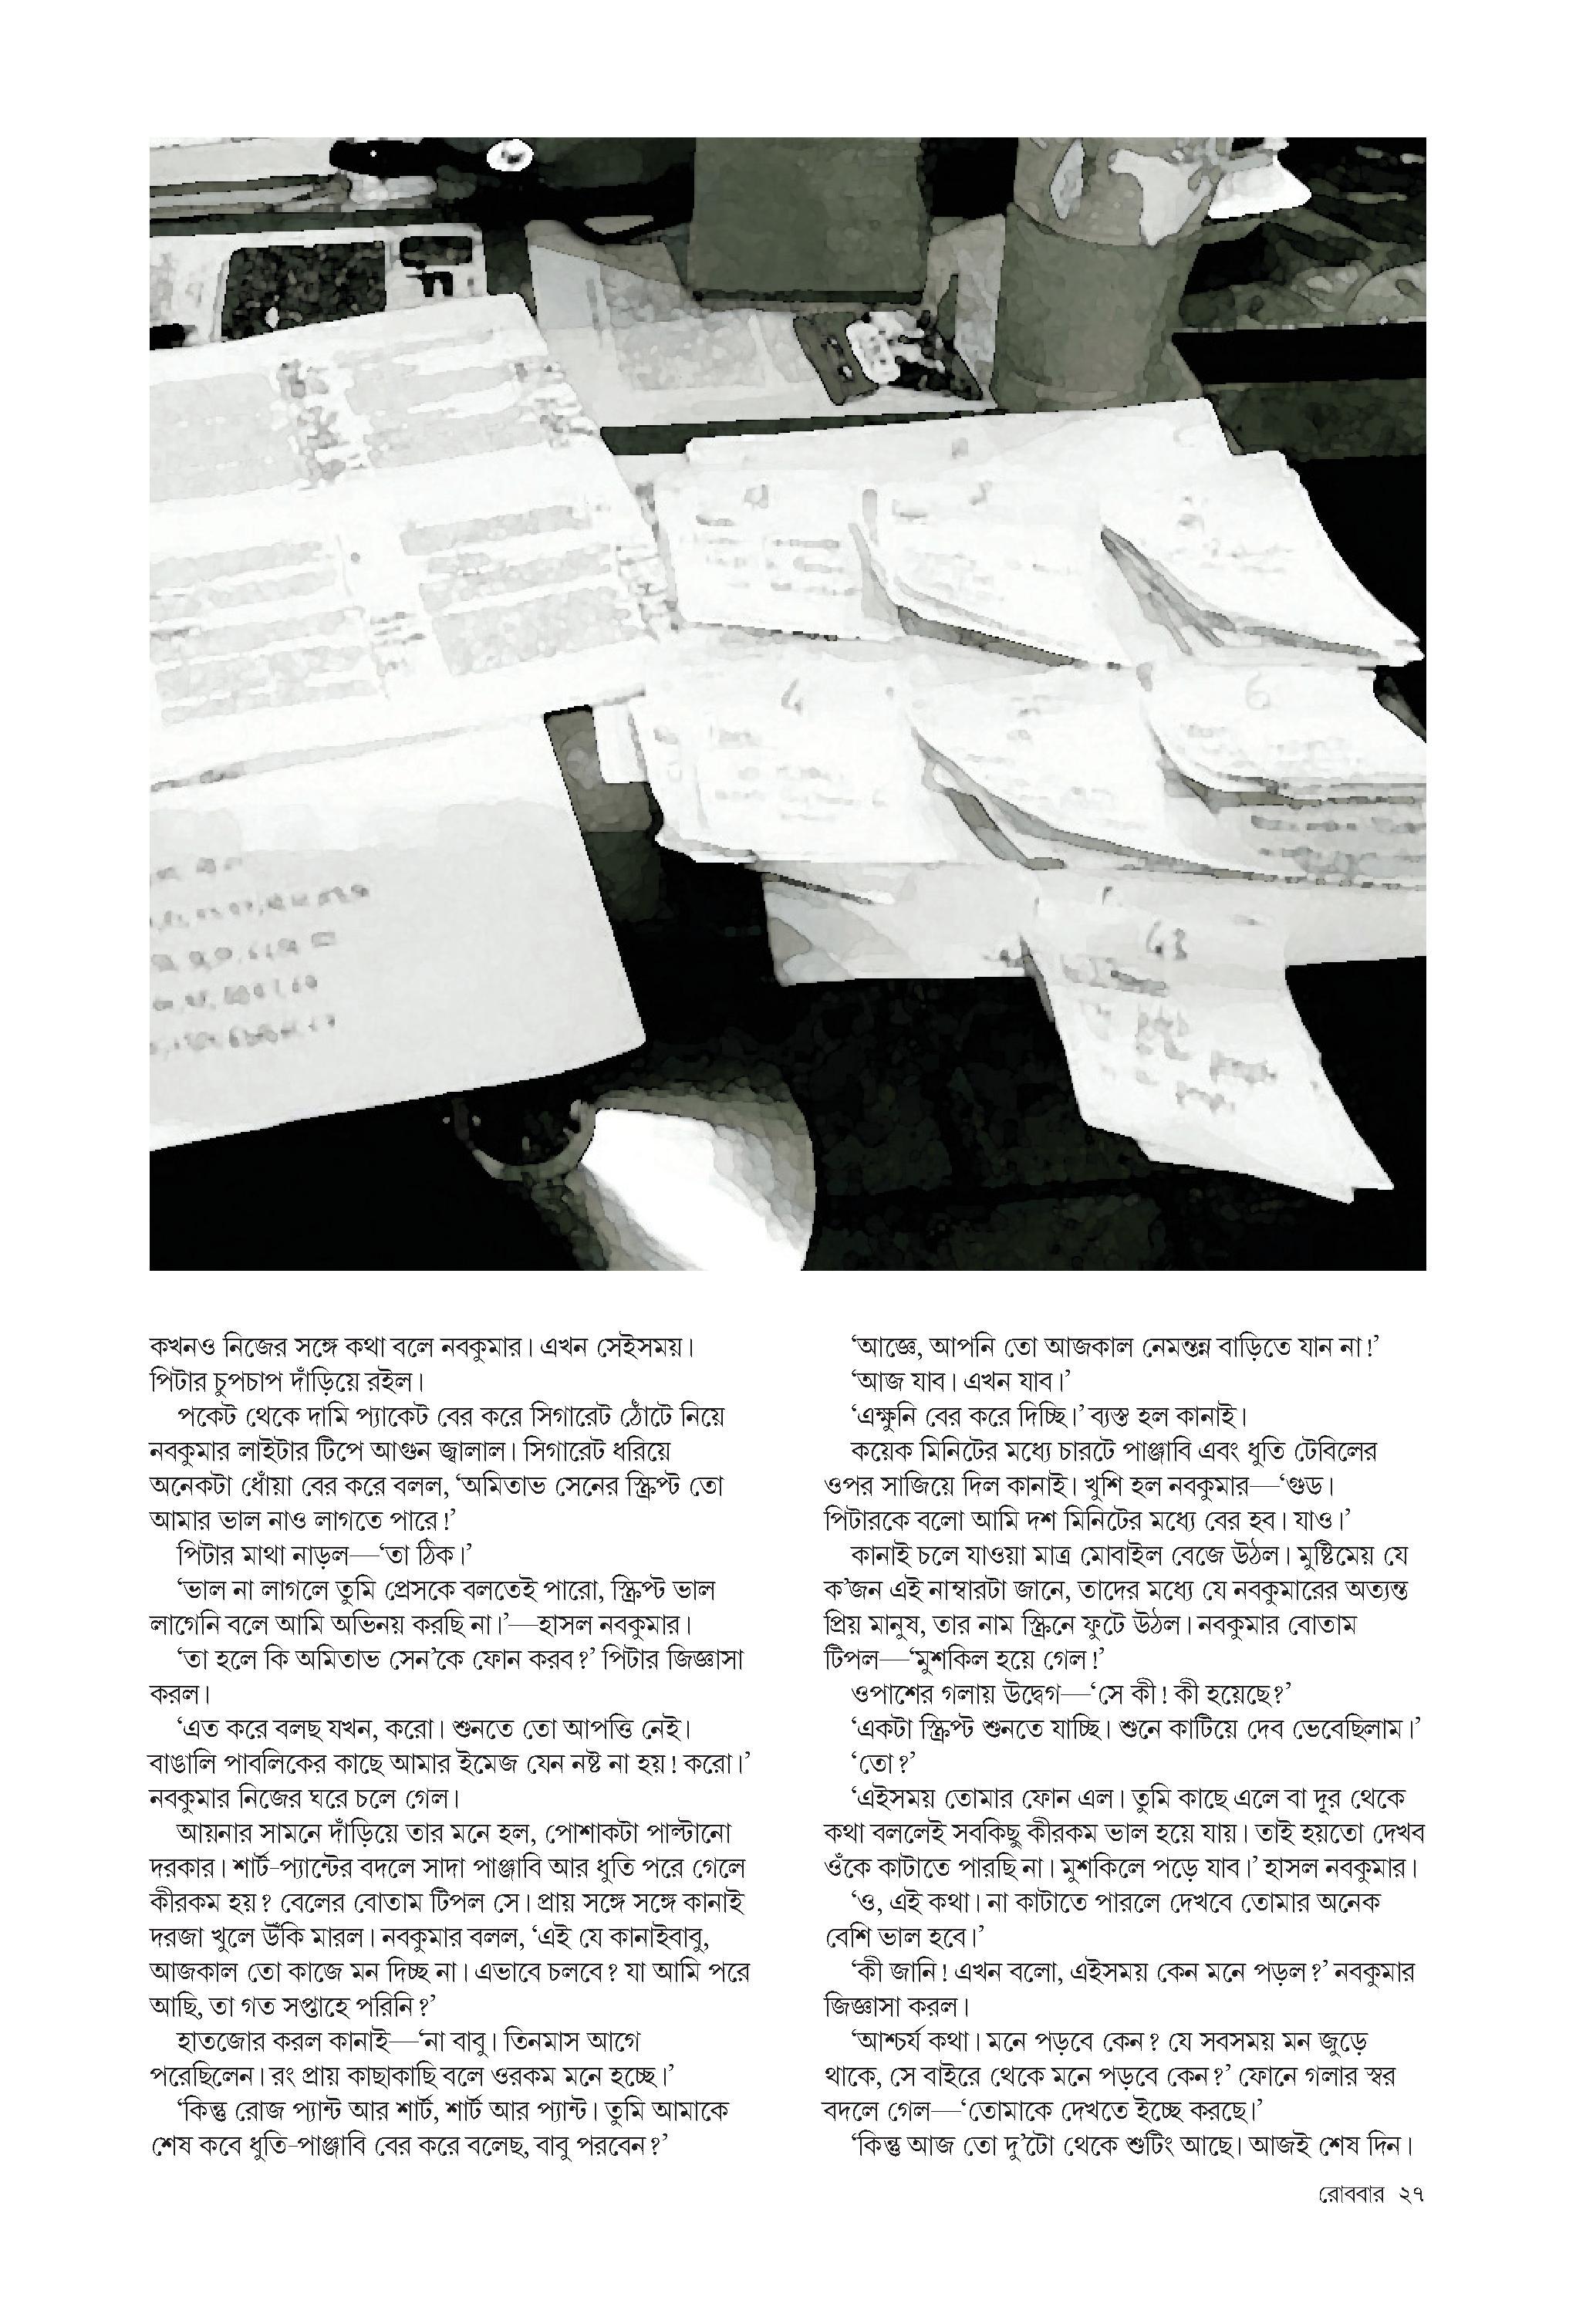 কখনও নিজের সঙ্গে কথা বলে নবকুমার। এখন সেইসময়।
পিটার চুপচাপ দাঁড়িয়ে রইল।
পকেট থেকে দামি প্যাকেট বের করে সিগারেট ঠোঁটে নিয়ে
নবকুমার লাইটার টিপে আগুন জ্বালাল। সিগারেট ধরিয়ে
অনেকটা ধোঁয়া বের করে বলল, ‘অমিতাভ সেনের স্ক্রিপ্ট তো
আমার ভাল নাও লাগতে পারে!’
পিটার মাথা নাড়ল—‘তা ঠিক।’
‘ভাল না লাগলে তুমি প্রেসকে বলতেই পারো, স্ক্রিপ্ট ভাল
লাগেনি বলে আমি অভিনয় করছি না।’—হাসল নবকুমার।
‘তা হলে কি অমিতাভ সেন’কে ফোন করব?’ পিটার জিজ্ঞাসা
করল।
‘এত করে বলছ যখন, করো। শুনতে তো আপত্তি নেই।
বাঙালি পাবলিকের কাছে আমার ইমেজ যেন নষ্ট না হয়! করো।’
নবকুমার নিজের ঘরে চলে গেল।
আয়নার সামনে দাঁড়িয়ে তার মনে হল, পোশাকটা পাল্টানো
দরকার। শার্ট-প্যান্টের বদলে সাদা পাঞ্জাবি আর ধুতি পরে গেলে
কীরকম হয়? বেলের বোতাম টিপল সে। প্রায় সঙ্গে সঙ্গে কানাই
দরজা খুলে উঁকি মারল। নবকুমার বলল, ‘এই যে কানাইবাবু,
আজকাল তো কাজে মন দিচ্ছ না। এভাবে চলবে? যা আমি পরে
আছি, তা গত সপ্তাহে পরিনি?’
হাতজোর করল কানাই—‘না বাবু। তিনমাস আগে
পরেছিলেন। রং প্রায় কাছাকাছি বলে ওরকম মনে হচ্ছে।’
‘কিন্তু রোজ প্যান্ট আর শার্ট, শার্ট আর প্যান্ট। তুমি আমাকে
শেষ কবে ধুতি-পাঞ্জাবি বের করে বলেছ, বাবু পরবেন?’
‘আজ্ঞে, আপনি তো আজকাল নেমন্তন্ন বাড়িতে যান না!’
‘আজ যাব। এখন যাব।’
‘এক্ষুনি বের করে দিচ্ছি।’ ব্যস্ত হল কানাই।
কয়েক মিনিটের মধ্যে চারটে পাঞ্জাবি এবং ধুতি টেবিলের
ওপর সাজিয়ে দিল কানাই। খুশি হল নবকুমার—‘গুড।
পিটারকে বলো আমি দশ মিনিটের মধ্যে বের হব। যাও।’
কানাই চলে যাওয়া মাত্র মোবাইল বেজে উঠল। মুষ্টিমেয় যে
ক’জন এই নাম্বারটা জানে, তাদের মধ্যে যে নবকুমারের অত্যন্ত
প্রিয় মানুষ, তার নাম স্ক্রিনে ফুটে উঠল। নবকুমার বোতাম
টিপল—‘মুশকিল হয়ে গেল!’
ওপাশের গলায় উদ্বেগ—‘সে কী! কী হয়েছে?’
‘একটা স্ক্রিপ্ট শুনতে যাচ্ছি। শুনে কাটিয়ে দেব ভেবেছিলাম।’
‘তো?’
‘এইসময় তোমার ফোন এল। তুমি কাছে এলে বা দূর থেকে
কথা বললেই সবকিছু কীরকম ভাল হয়ে যায়। তাই হয়তো দেখব
ওঁকে কাটাতে পারছি না। মুশকিলে পড়ে যাব।’ হাসল নবকুমার।
‘ও, এই কথা। না কাটাতে পারলে দেখবে তোমার অনেক
বেশি ভাল হবে।’
‘কী জানি! এখন বলো, এইসময় কেন মনে পড়ল?’ নবকুমার
জিজ্ঞাসা করল।
‘আশ্চর্য কথা। মনে পড়বে কেন? যে সবসময় মন জুড়ে
থাকে, সে বাইরে থেকে মনে পড়বে কেন?’ ফোনে গলার স্বর
বদলে গেল—‘তোমাকে দেখতে ইচ্ছে করছে।’
‘কিন্তু আজ তো দু’টো থেকে শুটিং আছে। আজই শেষ দিন।
রোববার ২৭